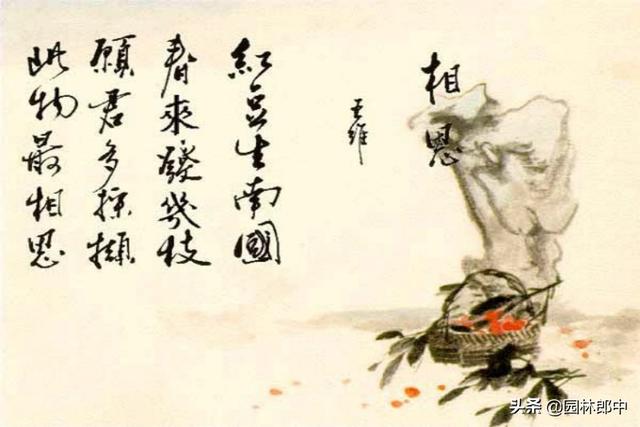 相思
王維
紅豆生南國
春來發幾枝
願君多採擷
此物最相思
头条 @园林郎中